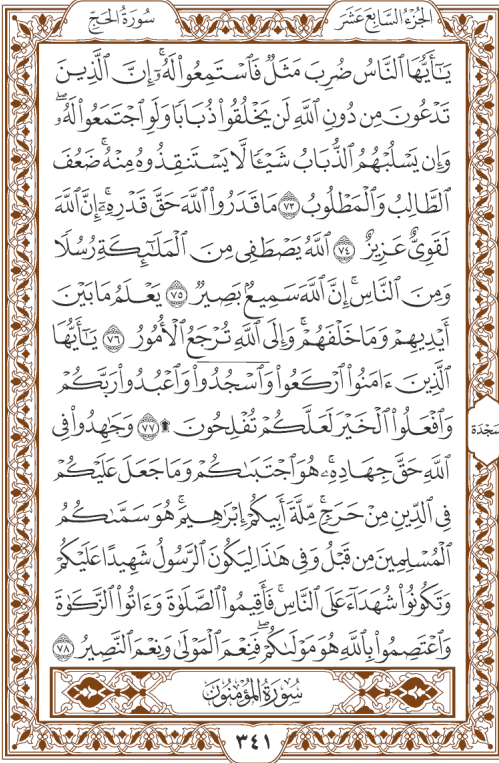 الجزء السابع عشر
سورة الحج
يَٰٓأَيُّهَا ٱلنَّاسُ ضُرِبَ مَثَلٞ فَٱسۡتَمِعُواْ لَهُۥٓۚ إِنَّ ٱلَّذِينَ
تَدۡعُونَ مِن دُونِ ٱللَّهِ لَن يَخۡلُقُواْ ذُبَابٗا وَلَوِ ٱجۡتَمَعُواْ لَهُۥۖ
وَإِن يَسۡلُبۡهُمُ ٱلذُّبَابُ شَيۡـٔٗا لَّا يَسۡتَنقِذُوهُ مِنۡهُۚ ضَعُفَ
ٱلطَّالِبُ وَٱلۡمَطۡلُوبُ ٧٣ مَا قَدَرُواْ ٱللَّهَ حَقَّ قَدۡرِهِۦٓۚ إِنَّ ٱللَّهَ
لَقَوِيٌّ عَزِيزٌ ٧٤ ٱللَّهُ يَصۡطَفِي مِنَ ٱلۡمَلَٰٓئِكَةِ رُسُلٗا
وَمِنَ ٱلنَّاسِۚ إِنَّ ٱللَّهَ سَمِيعُۢ بَصِيرٞ ٧٥ يَعۡلَمُ مَا بَيۡنَ
أَيۡدِيهِمۡ وَمَا خَلۡفَهُمۡۚ وَإِلَى ٱللَّهِ تُرۡجَعُ ٱلۡأُمُورُ ٧٦ يَٰٓأَيُّهَا
ٱلَّذِينَ ءَامَنُواْ ٱرۡكَعُواْ وَٱسۡجُدُواْۤ وَٱعۡبُدُواْ رَبَّكُمۡ
وَٱفۡعَلُواْ ٱلۡخَيۡرَ لَعَلَّكُمۡ تُفۡلِحُونَ۩ ٧٧ وَجَٰهِدُواْ فِي
سجدة
ٱللَّهِ حَقَّ جِهَادِهِۦۚ هُوَ ٱجۡتَبَىٰكُمۡ وَمَا جَعَلَ عَلَيۡكُمۡ
فِي ٱلدِّينِ مِنۡ حَرَجٖۚ مِّلَّةَ أَبِيكُمۡ إِبۡرَٰهِيمَۚ هُوَ سَمَّىٰكُمُ
ٱلۡمُسۡلِمِينَ مِن قَبۡلُ وَفِي هَٰذَا لِيَكُونَ ٱلرَّسُولُ شَهِيدًا عَلَيۡكُمۡ
وَتَكُونُواْ شُهَدَآءَ عَلَى ٱلنَّاسِۚ فَأَقِيمُواْ ٱلصَّلَوٰةَ وَءَاتُواْ ٱلزَّكَوٰةَ
وَٱعۡتَصِمُواْ بِٱللَّهِ هُوَ مَوۡلَىٰكُمۡۖ فَنِعۡمَ ٱلۡمَوۡلَىٰ وَنِعۡمَ ٱلنَّصِيرُ ٧٨
سورة المؤمنون
٣٤١